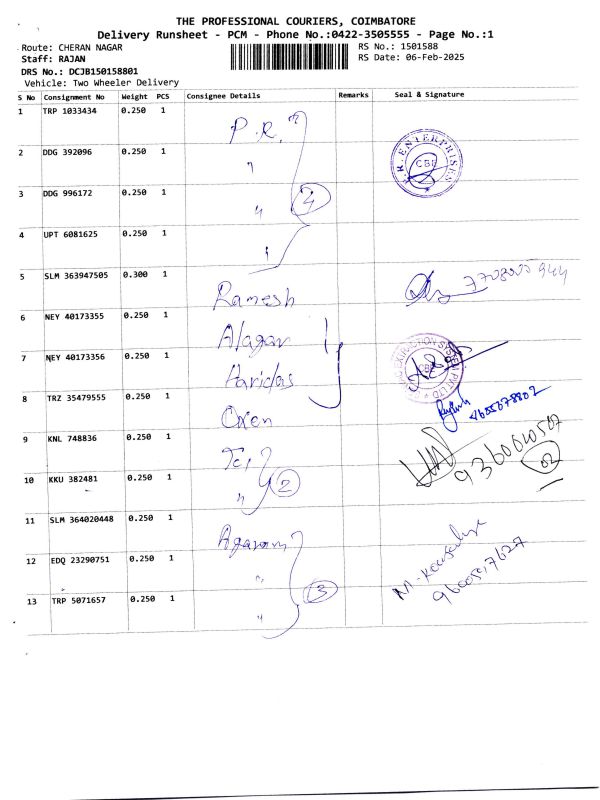 THE PROFESSIONAL COURIERS, COIMBATORE
Delivery Runsheet - PCM - Phone No.:0422-3505555 - Page No.:1
Route: CHERAN NAGAR
RS No.: 1501588
Staff: RAJAN
RS Date: 06-Feb-2025
DRS No.: DCJB150158801
Vehicle: Two Wheeler Delivery
S No Consignment No Weight PCS Consignee Details Remarks Seal & Signature
1 TRP 1033434 0.250 1 P.R. "
2 DDG 392096 0.250 1 " ENTERPRISES CBE
3 DDG 996172 0.250 1 " 4
4 UPT 6081625 0.250 1 "
5 SLM 363947505 0.300 1 Ramesh
6 NEY 40173355 0.250 1 Alagar
7 NEY 40173356 0.250 1 Haridas PVT LTD
8 TRZ 35479555 0.250 1 Oxen
9 KNL 748836 0.250 1 Tci 9360010507
10 KKU 382481 0.250 1 " 2 02
11 SLM 364020448 0.250 1 Agaram
12 EDQ 23290751 0.250 1 "
13 TRP 5071657 0.250 1 " 3